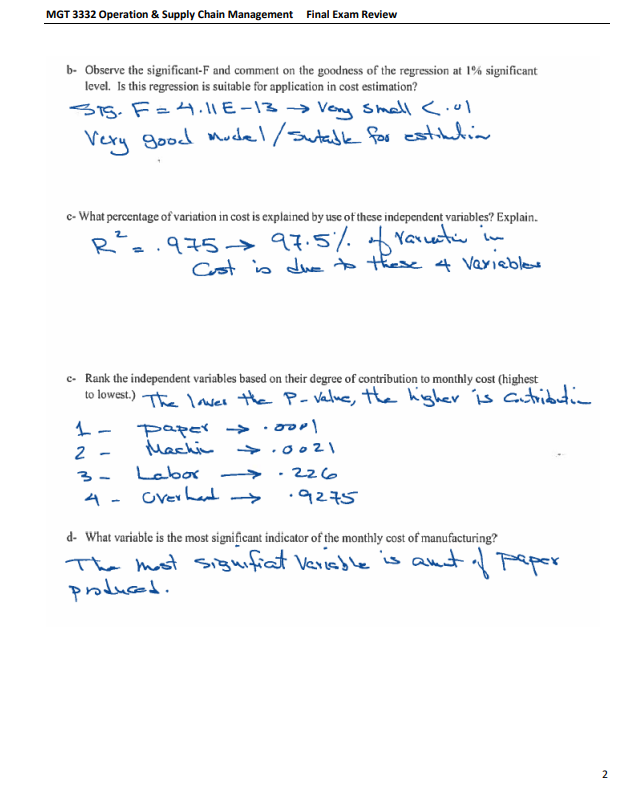 MGT 3332 Operation & Supply Chain Management Final Exam Review
b- Observe the significant-F and comment on the goodness of the regression at 1% significant
level. Is this regression is suitable for application in cost estimation?
SIG. F = 4.11E-13 → Very small < .01
Very good model / Suitable for estimation
c- What percentage of variation in cost is explained by use of these independent variables? Explain.
R² = .975 → 97.5% of variation in
Cost is due to these 4 variables
c- Rank the independent variables based on their degree of contribution to monthly cost (highest
to lowest.) The lower the P-value, the higher is Contribution
1 - paper → .0001
2 - Machin → .0021
3 - Labor → .226
4 - Overhead → .9275
d- What variable is the most significant indicator of the monthly cost of manufacturing?
The most significat variable is amt of paper
produced.
2